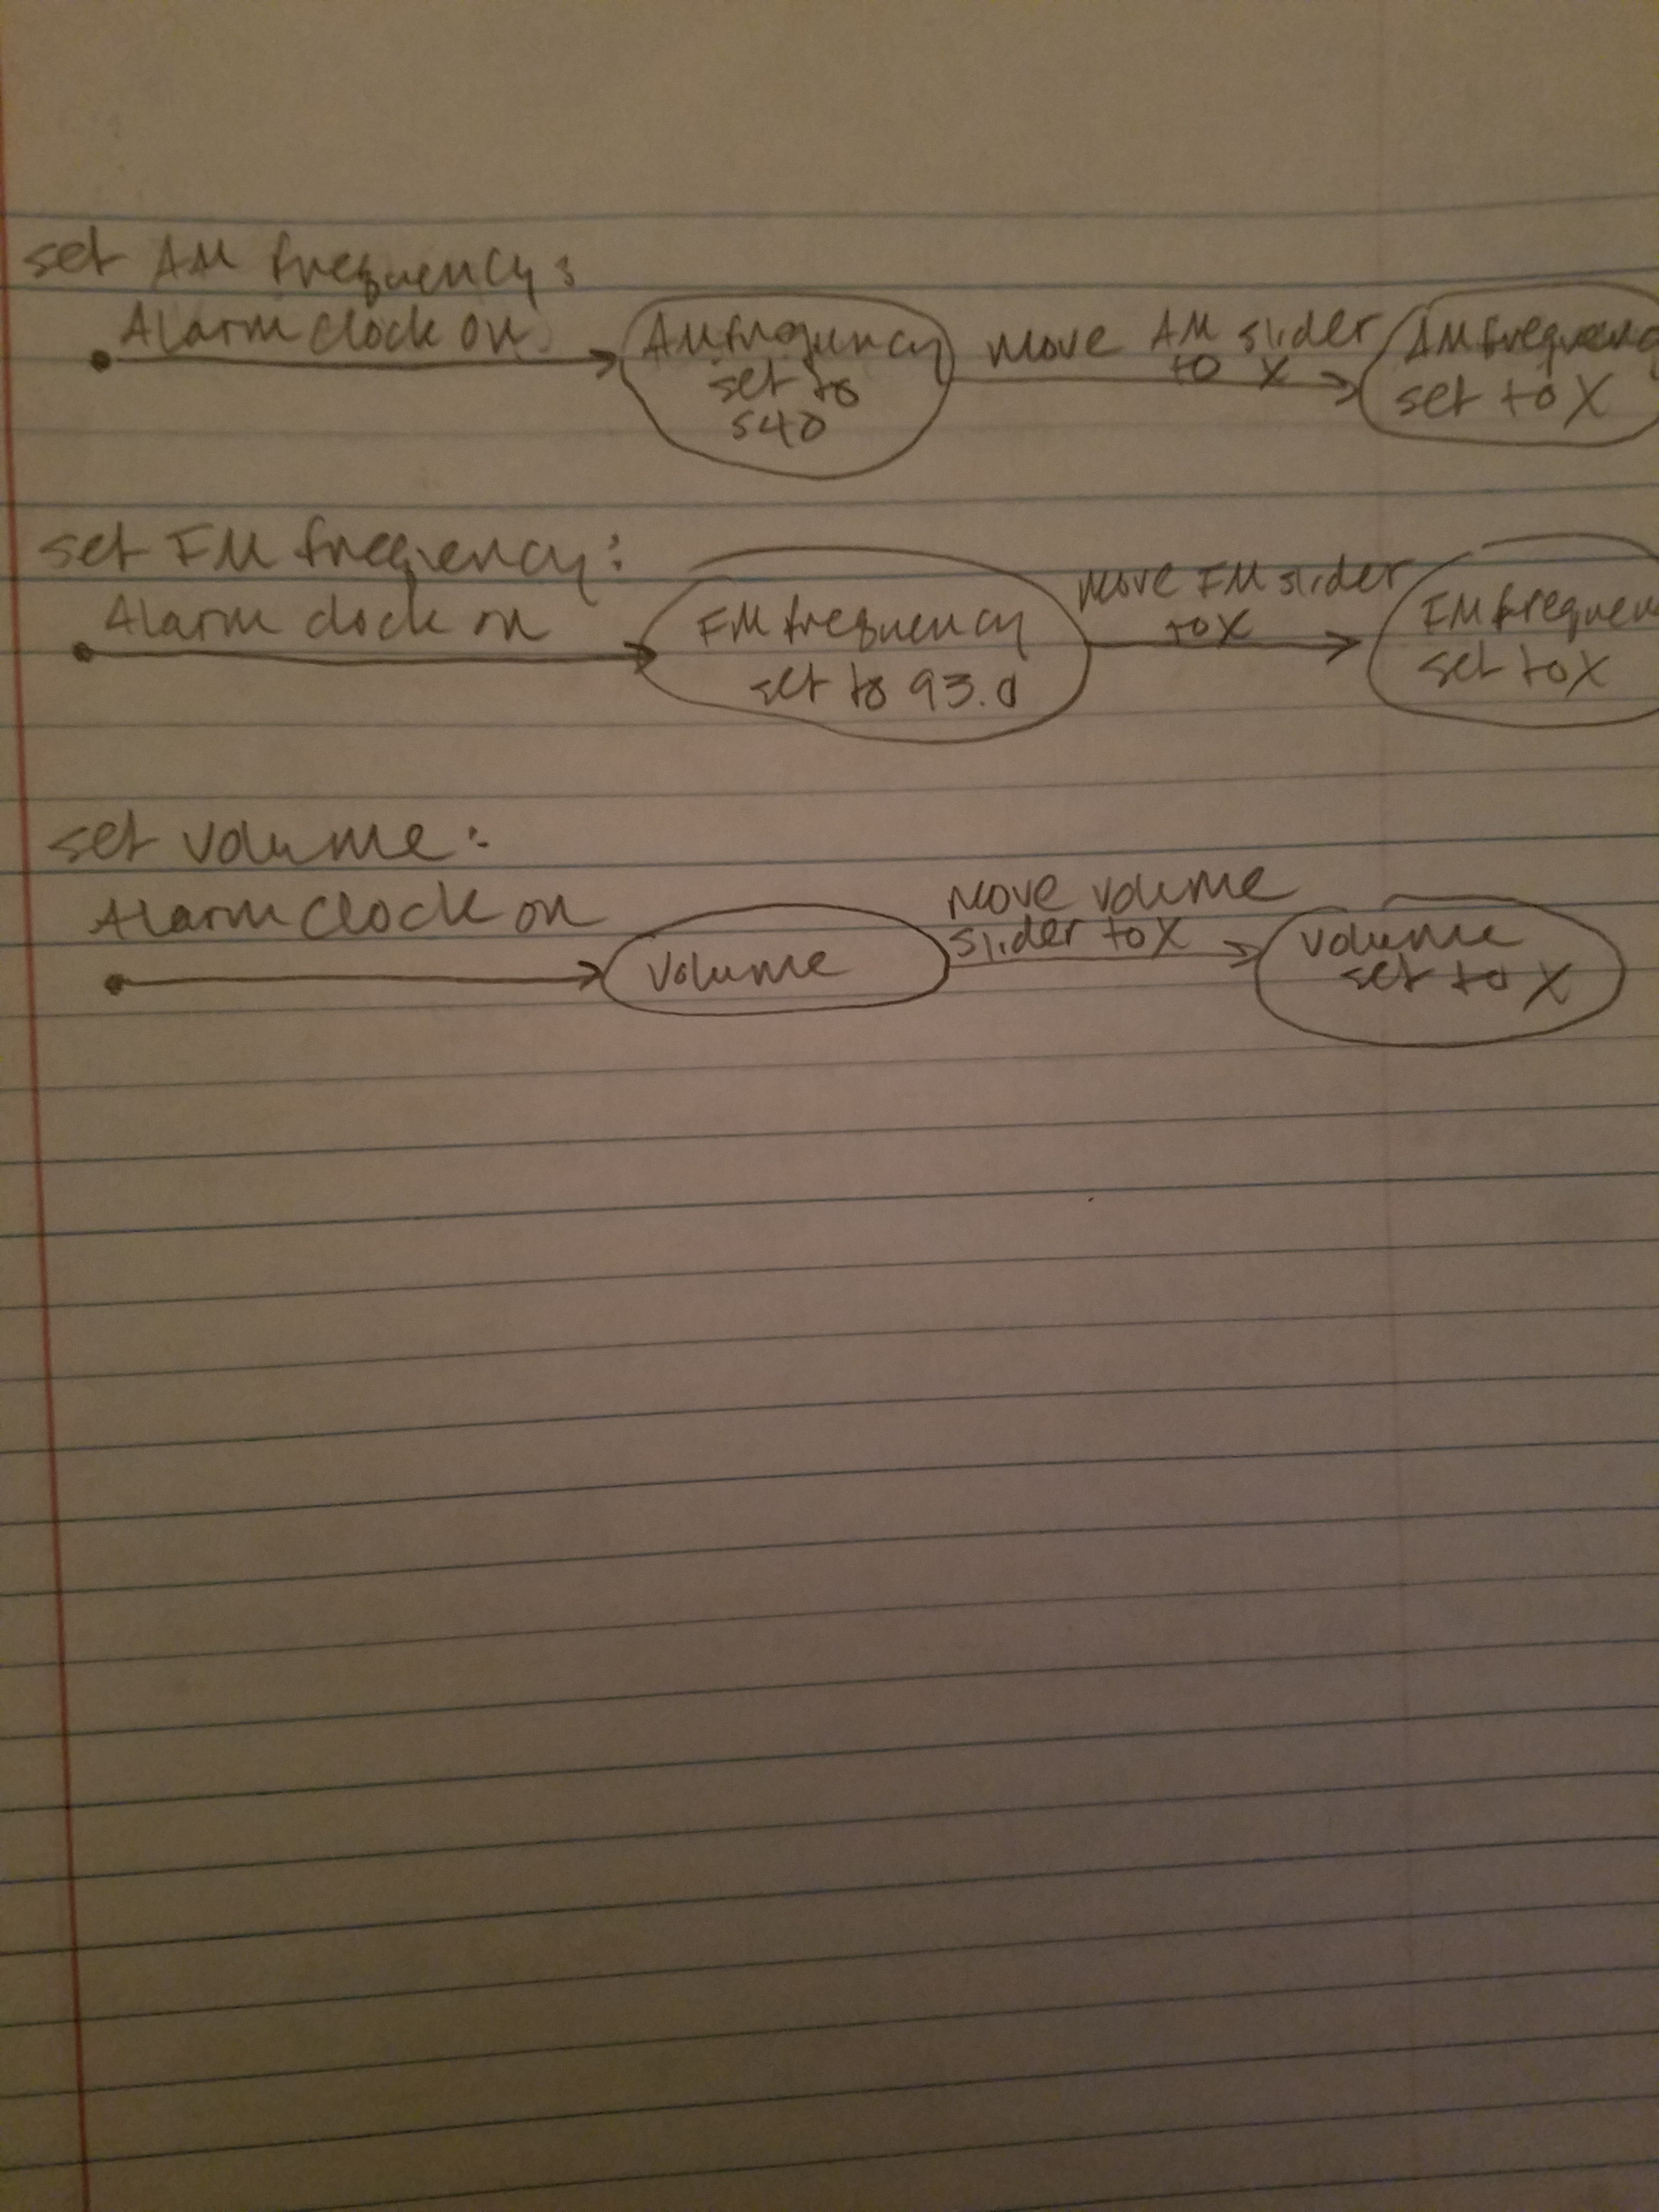 set AM frequency:
Alarm clock on
AM frequency
set to
540
move AM slider
to X
AM frequenc
set to X
set FM frequency:
Alarm clock on
FM frequency
set to 93.0
move FM slider
to X
FM frequen
set to X
set volume:
Alarm Clock on
volume
move volume
slider to X
volume
set to X